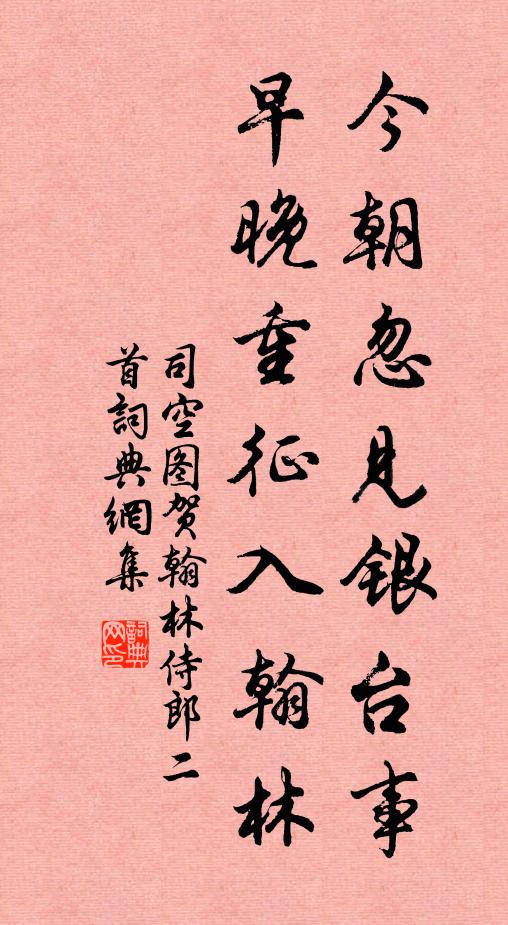 今朝忽见银台事
早晚重征入翰林
司空图贺翰林侍郎二
首詞典網集
詞典
网印